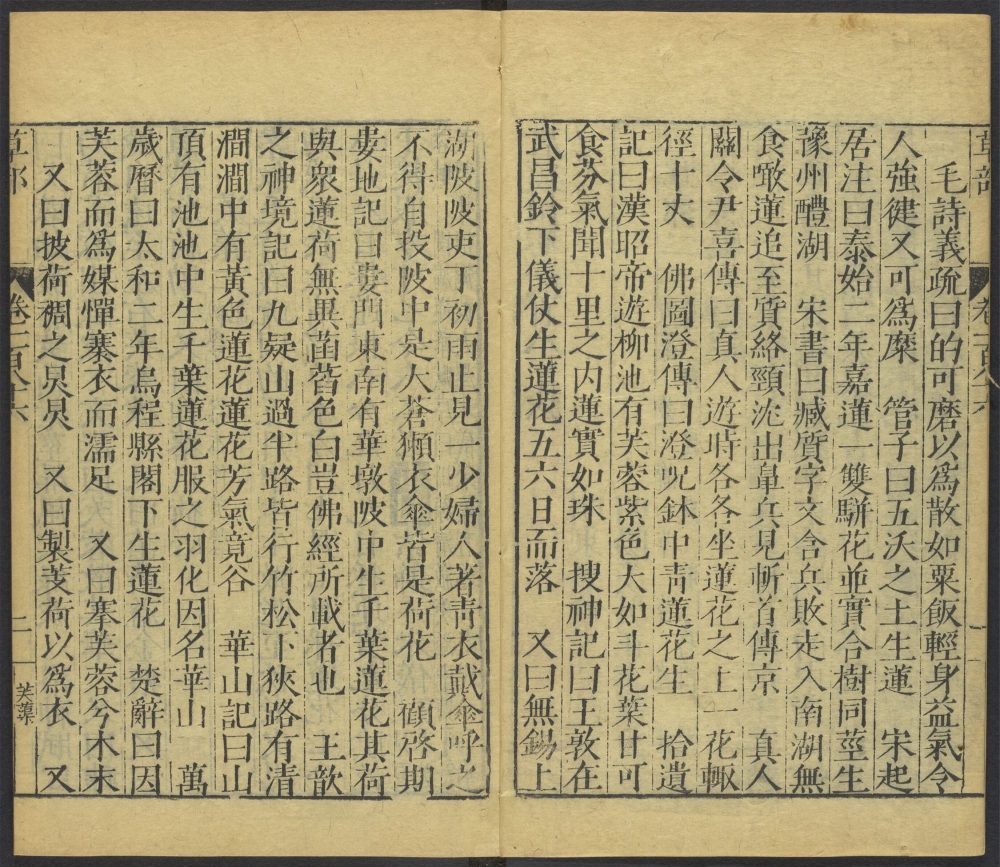 毛詩義疏曰的可磨以爲散如粟飯輕身益氣令
人強健又可爲糜　管子曰五沃之土生蓮　宋起
居注曰泰始二年嘉蓮一雙駢花並實合樹同莖生
豫州醴湖　宋書曰臧質字文含兵敗走入南湖無
食噉蓮追至質絡頸沈出鼻兵見斬首傳京　真人
關令尹喜傳曰真人遊時各各坐蓮花之上一花輙
徑十丈　佛圖澄傳曰澄呪鉢中靑蓮花生　拾遺
記曰漢昭帝遊柳池有芙蓉紫色大如斗花葉甘可
食芬氣聞十里之内蓮實如珠　搜神記曰王敦在
武昌鈴下儀仗生蓮花五六日而落　又曰無錫上
湖陂陂吏丁初雨止見一少婦人著靑衣戴傘呼之
不得自投陂中是大蒼獺衣傘皆是荷花　顧啓期
婁地記曰婁門東南有華墩陂中生千葉蓮花其荷
與衆蓮荷無異菡萏色白豈佛經所載者也　王歆
之神境記曰九疑山過半路皆行竹松下狹路有清
澗澗中有黃色蓮花蓮花芳氣竟谷　華山記曰山
頂有池池中生千葉蓮花服之羽化因名華山　萬
歲曆曰太和二年烏程縣閣下生蓮花　楚辭曰因
芙蓉而爲媒憚褰衣而濡足　又曰搴芙蓉兮木末
又曰披荷裯之炅炅　又曰製芰荷以爲衣　又
草部　卷二百八十六　二　芙蕖